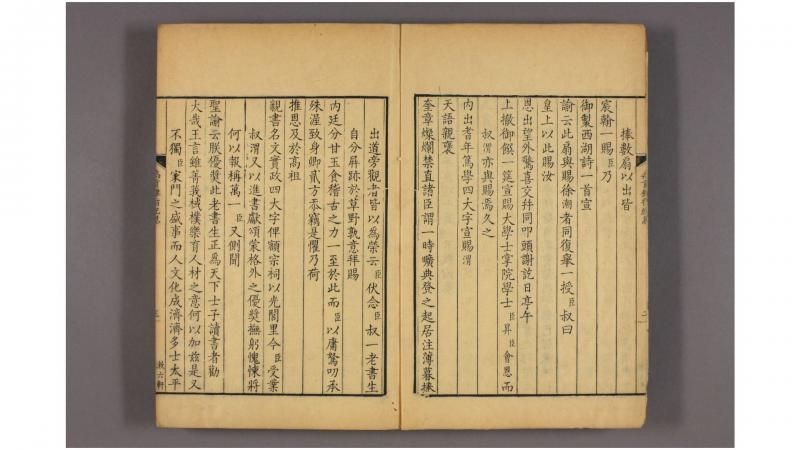 捧數扇以出皆
宸翰一賜臣乃
御製西湖詩一首宣
諭云此扇與賜徐潮者同復舉一授臣叔曰
皇上以此賜汝
恩出望外驚喜交并同叩頭謝訖日亭午
上撤御饌一筵宣賜大學士掌院學士臣昇臣會恩而
叔渭亦與賜焉久之
內出耆年篤學四大字宣賜渭
天語親褒
奎章燦爛禁直諸臣謂一時曠典登之起居注薄暮捧
出道旁觀者皆以為榮云臣伏念臣叔一老書生
自分屏跡於草野孰意拜賜
內廷分甘玉食稽古之力一至於此而臣以庸駑叨承
殊渥致身卿貳方忝竊是懼乃荷
推恩及於高祖
親書名文實政四大字俾額宗祠以光閭里今臣受業
叔渭又以進書獻頌蒙格外之優獎撫躬愧悚將
何以報稱萬一臣又側聞
聖諭云朕優獎此老書生正為天下士子讀書者勸
大哉王言雖菁莪棫樸樂育人材之意何以加茲是又
不獨臣家門之盛事而人文化成濟濟多士太平
敕六軒